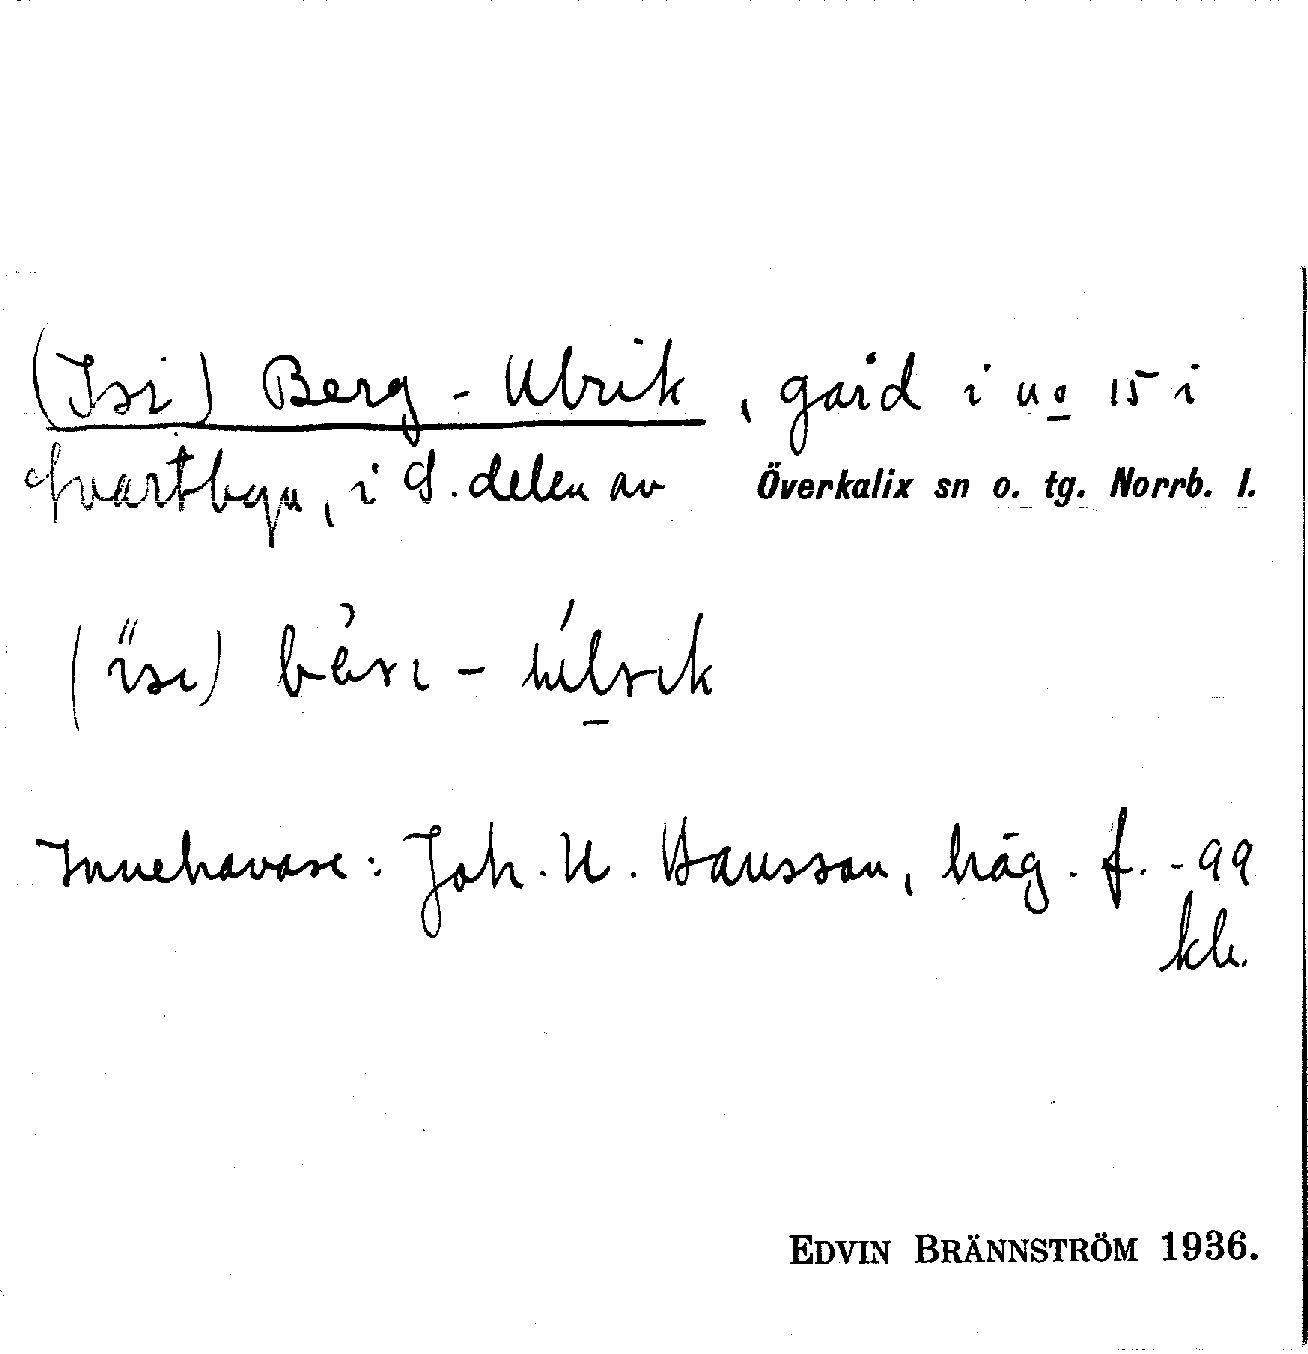 (Isi) Berg-Ulrik, gård i no 15 i
Svartbyn, i S. delen av Överkalix sn o. tg. Norrb. l.
Innehavare: Joh. U. Hansson, häg. f. -99
EDVIN BRÄNNSTRÖM 1936.